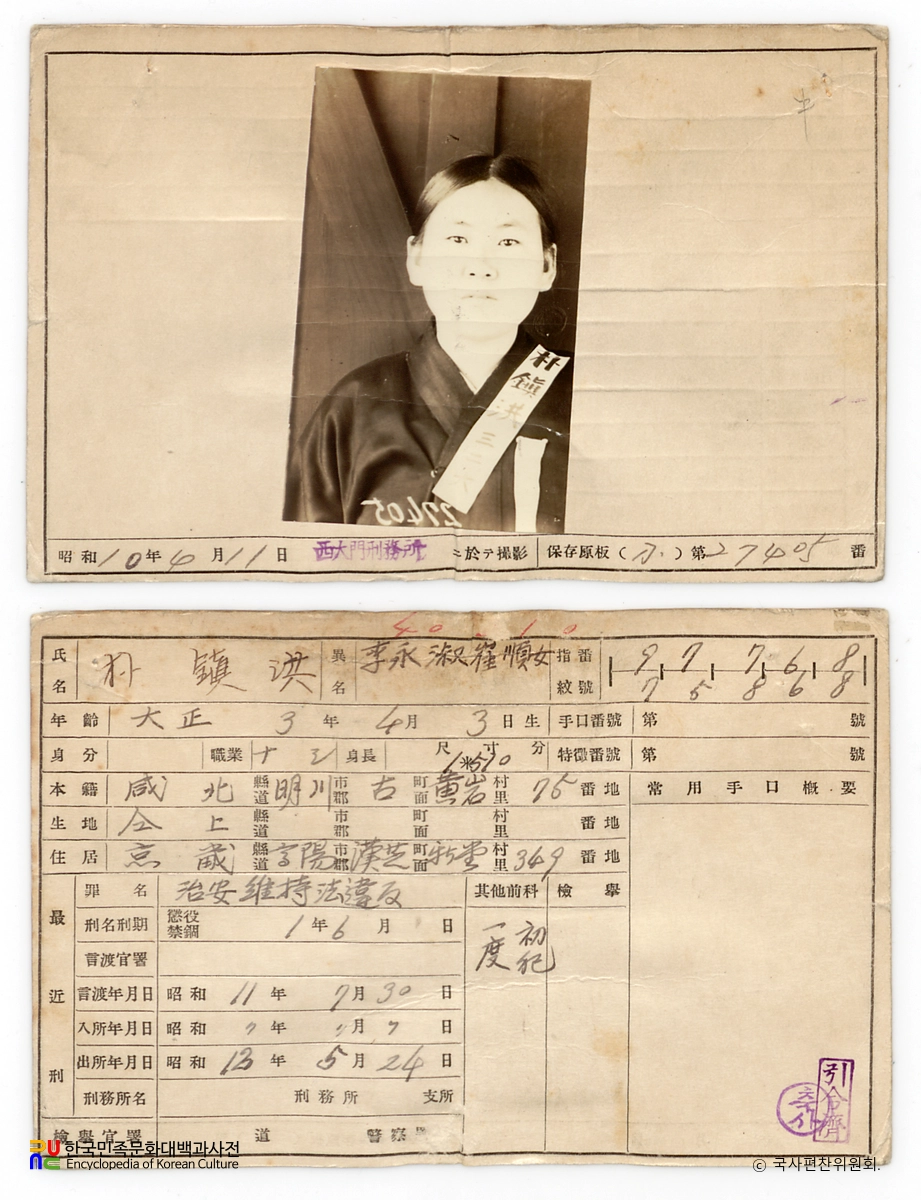 朴鎭洪 三
27405
昭和10年4月11日 西大門刑務所 ニ於テ撮影 保存原板( )第27405番
氏名 朴鎭洪 異名 李永淑 崔順女 指紋番號 9 7 7 6 8
7 5 8 6 8
年齡 大正3年4月3日生 手口番號 第 號
身分 職業 ナシ 身長 尺寸分 特徵番號 第 號
本籍 咸北 縣道 明川 市郡 古 町面 黄岩 村里 75 番地 常用手口槪要
生地 仝上 縣道 市郡 町面 村里 番地
住居 京畿 縣道 高陽 市郡 漢芝 町面 新堂 村里 349 番地
最近刑
罪名 治安維持法違反 其他前科 檢擧
刑名刑期 懲役 禁錮 1年6月 日 一度 初犯
言渡官署
言渡年月日 昭和11年7月30日
入所年月日 昭和 年 月 日
出所年月日 昭和13年5月24日
刑務所名 刑務所 支所
檢擧官署 道 警察
引合濟
한국민족문화대백과사전
Encyclopedia of Korean Culture
© 국사편찬위원회.